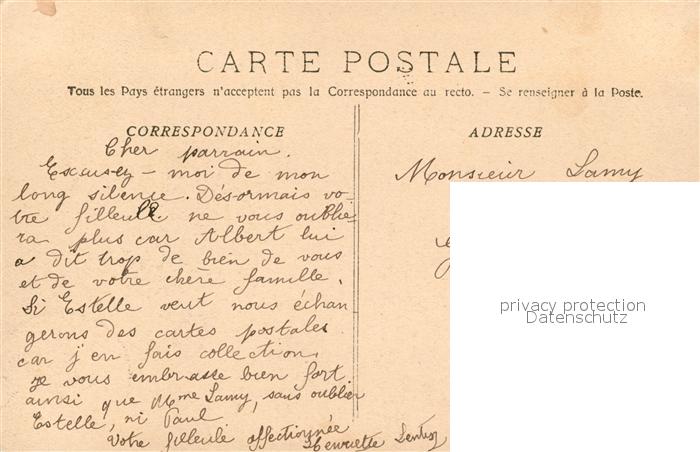 CARTE POSTALE
Tous les Pays étrangers n'acceptent pas la Correspondance au recto. – Se renseigner à la Poste.
CORRESPONDANCE
Cher parrain.
Excusez-moi de mon
long silence. Désormais vo-
tre filleule ne vous oublie-
ra plus car Albert lui
a dit trop de bien de vous
et de votre chère famille.
Si Estelle veut nous échan
gerons des cartes postales
car j'en fais collection.
Je vous embrasse bien fort
ainsi que Mme Lamy, sans oublier
Estelle, ni Paul
Votre filleule affectionnée
Henriette
ADRESSE
Monsieur Lamy
privacy protection
Datenschutz